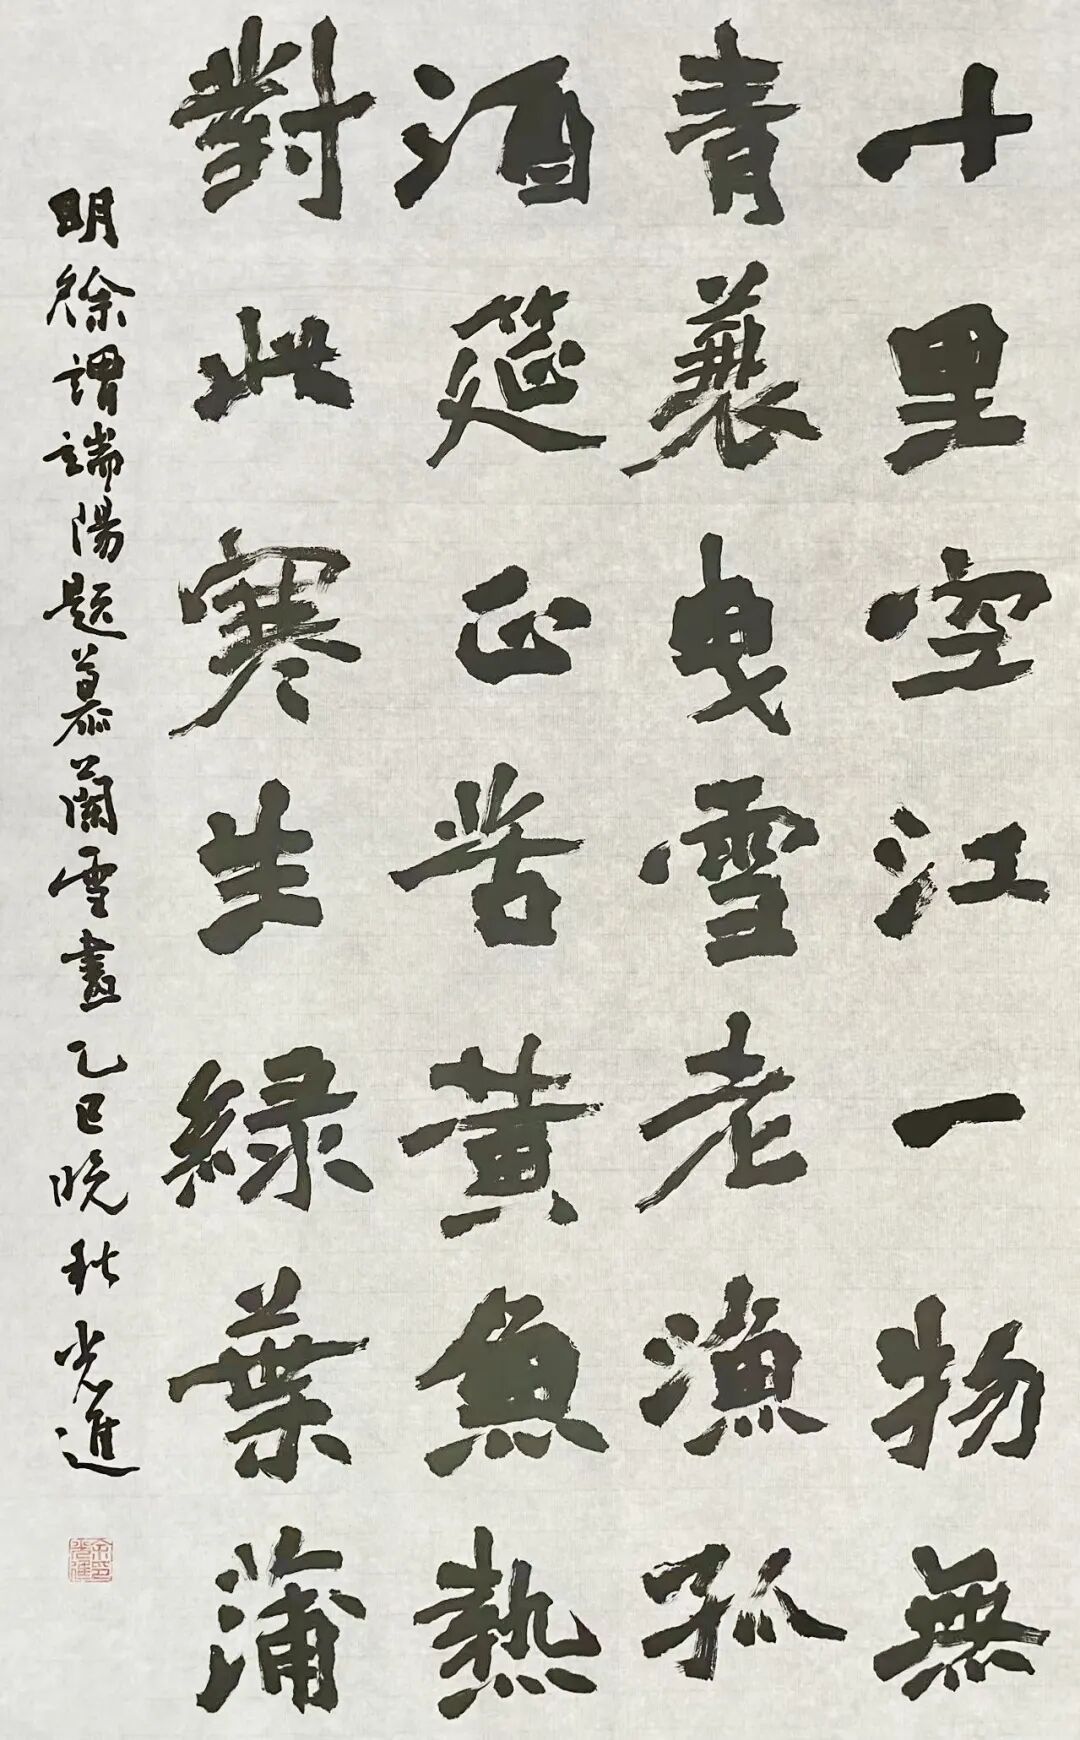 十里空江一物無
青蓑曳雪老漁孤
酒筵正苦黃魚熱
對此寒生綠葉蒲
明徐謂端陽題慕蘭雪畫乙巳晚秋光進